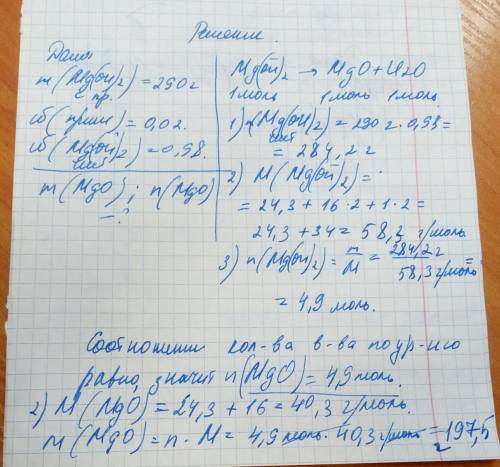 Решение.
Дано
m(Mg(OH)2) = 290 г
с пр.
ω(прим) = 0,02.
ω(Mg(OH)2) = 0,98.
чист
m(MgO); n(MgO)
— ?
Mg(OH)2 → MgO + H2O
1 моль 1 моль 1 моль
1) m(Mg(OH)2) = 290 г · 0,98 =
чист
= 284,2 г
2) M(Mg(OH)2) =
= 24,3 + 16 · 2 + 1 · 2 =
24,3 + 34 = 58,3 г/моль
3) n(Mg(OH)2) = n/M = 284,2 г/58,3 г/моль =
= 4,9 моль.
Соотношение кол-ва в-ва по ур-ию
равно, значит n(MgO) = 4,9 моль.
2) M(MgO) = 24,3 + 16 = 40,3 г/моль.
m(MgO) = n · M = 4,9 моль · 40,3 г/моль = 197,5
г